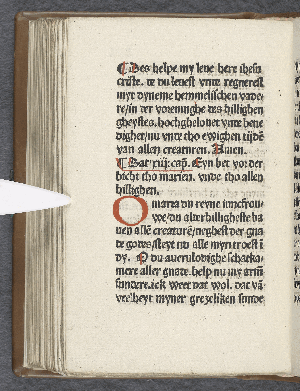 ¶ Des helpe my leue here ihesu
criste. te du leuest vnte regnerest
myt dyneme hemmelischen vade-
re/in der voreninghe des hillighen
gheystes. hochghelouet vnte bene
digher/nu vnte tho ewighen tijdē
van allen creaturen. Amen.
¶ Dat xiij: cap. Eyn bet vor der
bicht tho marien. vnde tho allen
hillighen.
O maria du reyne iunckfrou-
we/du alter hillighefte ba
uen allē creaturē/neghest der gna
de godes/steyt nu alle myn troest ī
dy. O du auerulodighe schatka-
mere aller gnade. help nu my armē
sundere. ick weet dat wol. dat vā
veelheyt myner grezeliken sunde